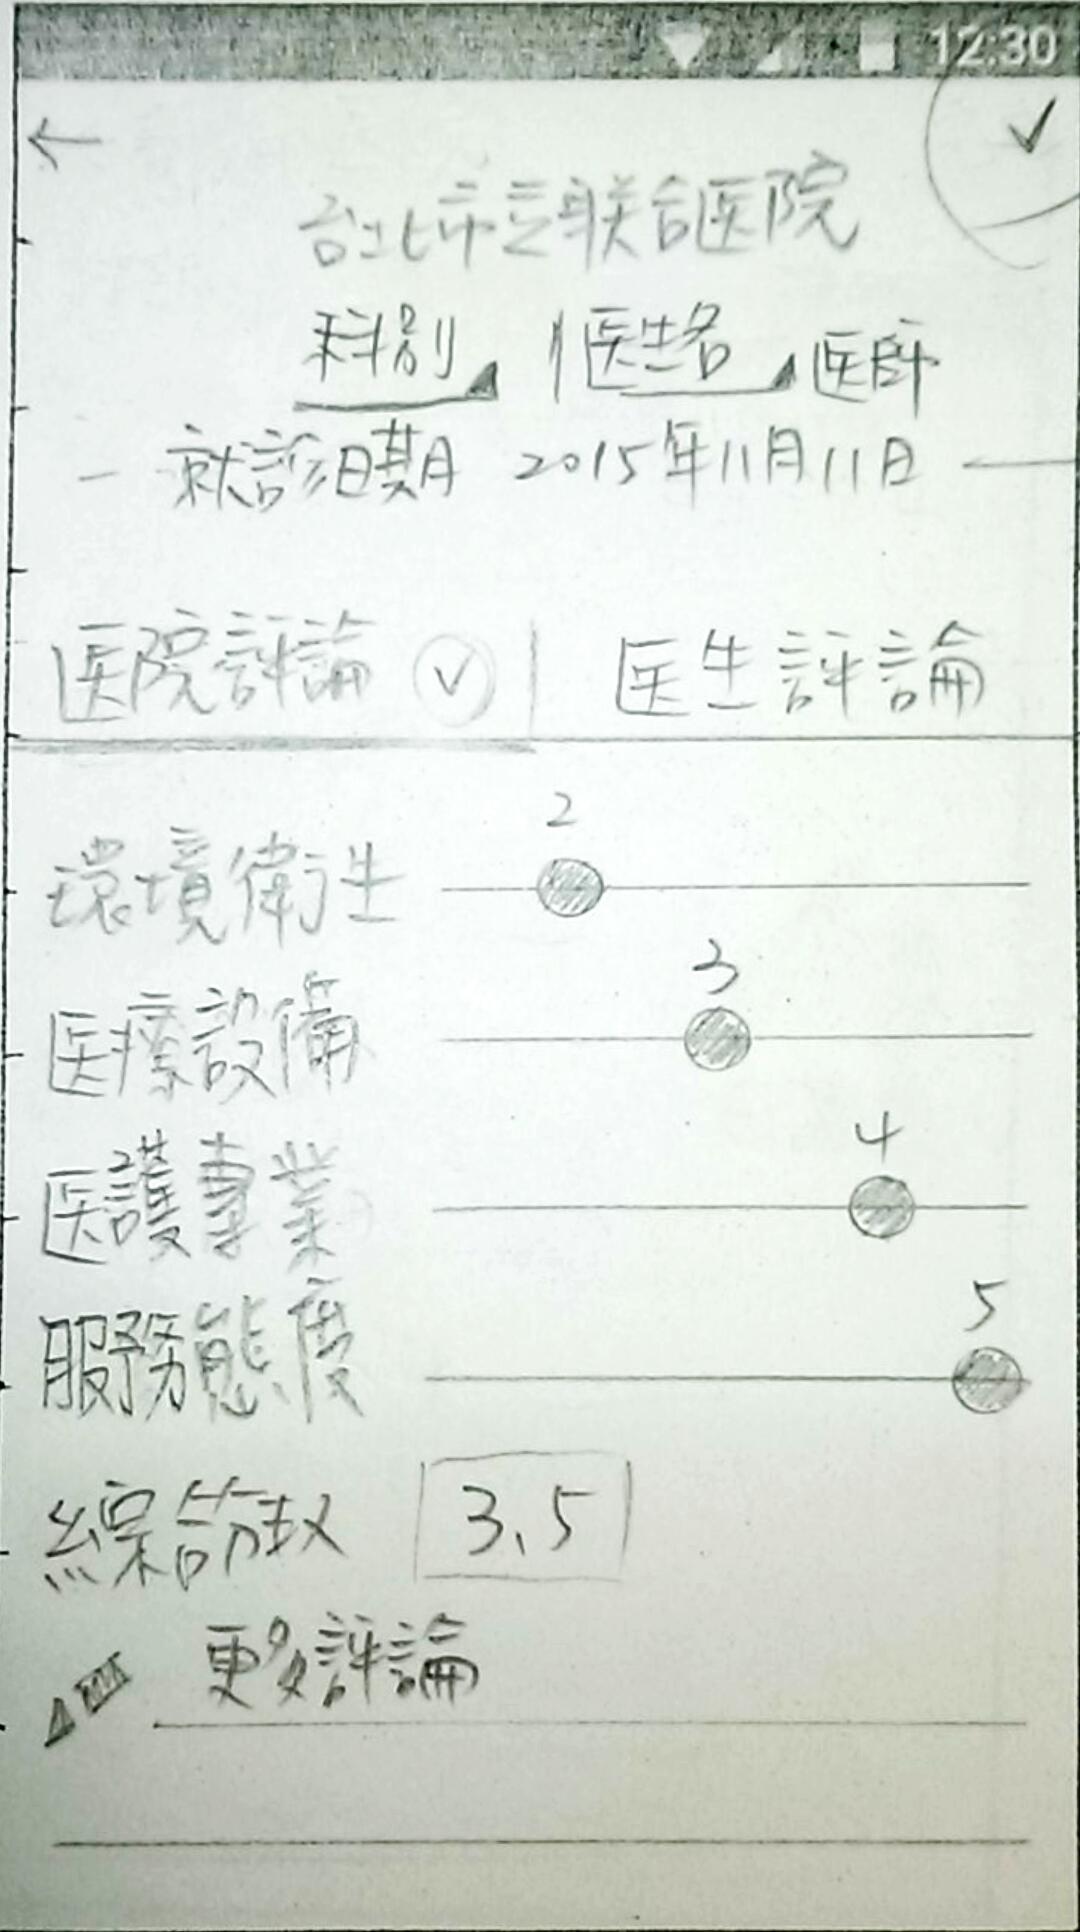 12:30
台北市立联合医院
科別 医生名 医師
就診日期 2015年11月11日
医院評論 医生評論
2
環境衛生
3
医療設備
4
医護專業
5
服務態度
綜合分数 3.5
更多評論